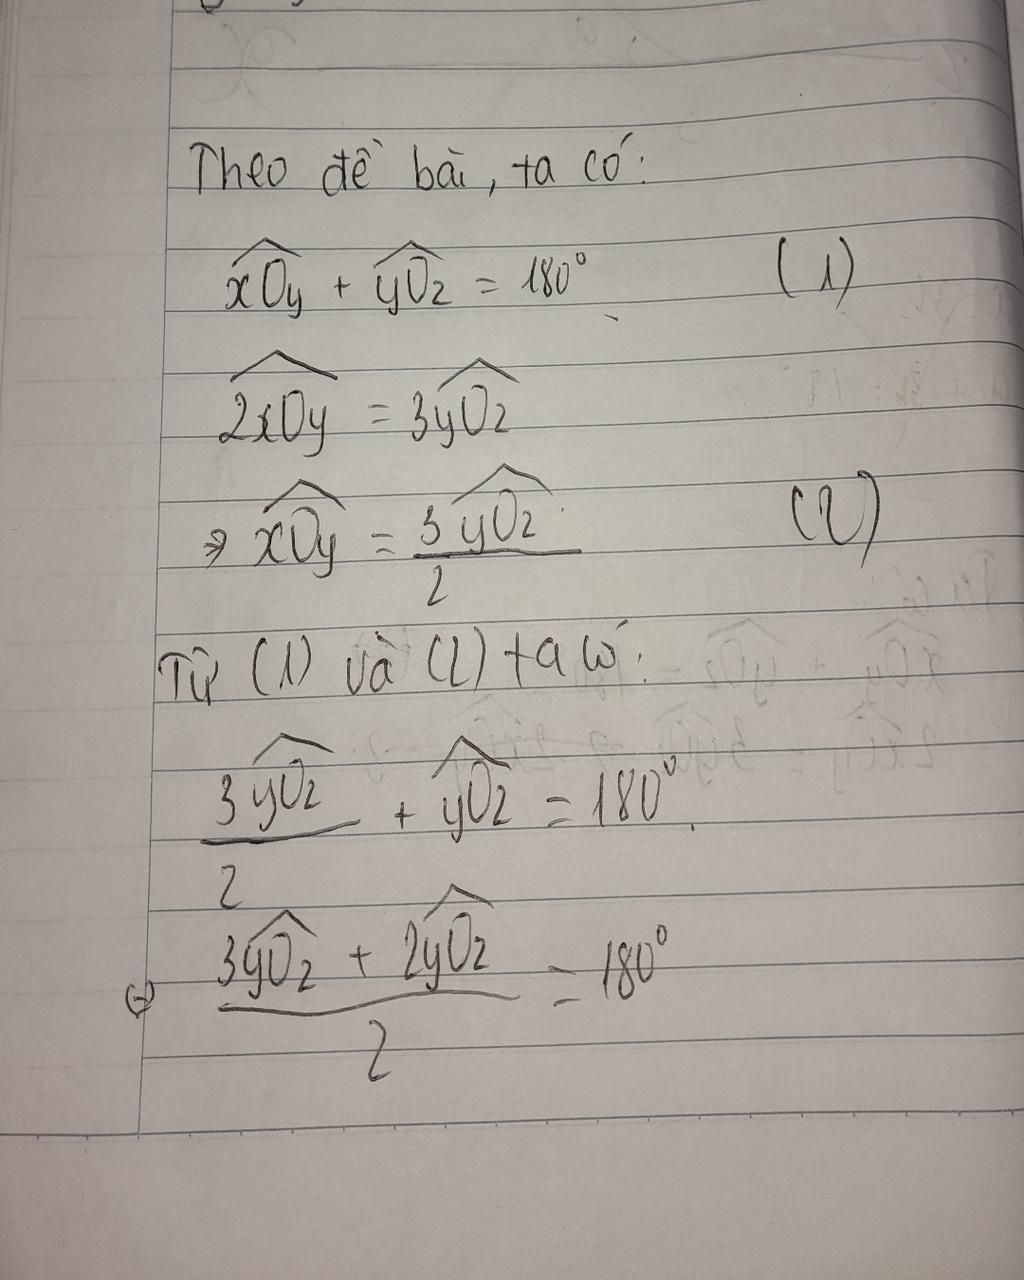 Theo đề bài, ta có:
xOy + yOz = 180° (1)
2xOy = 3yOz
⇒ xOy = 3yOz / 2 (2)
Từ (1) và (2) ta có:
3yOz / 2 + yOz = 180°
⇔ 3yOz + 2yOz / 2 = 180°